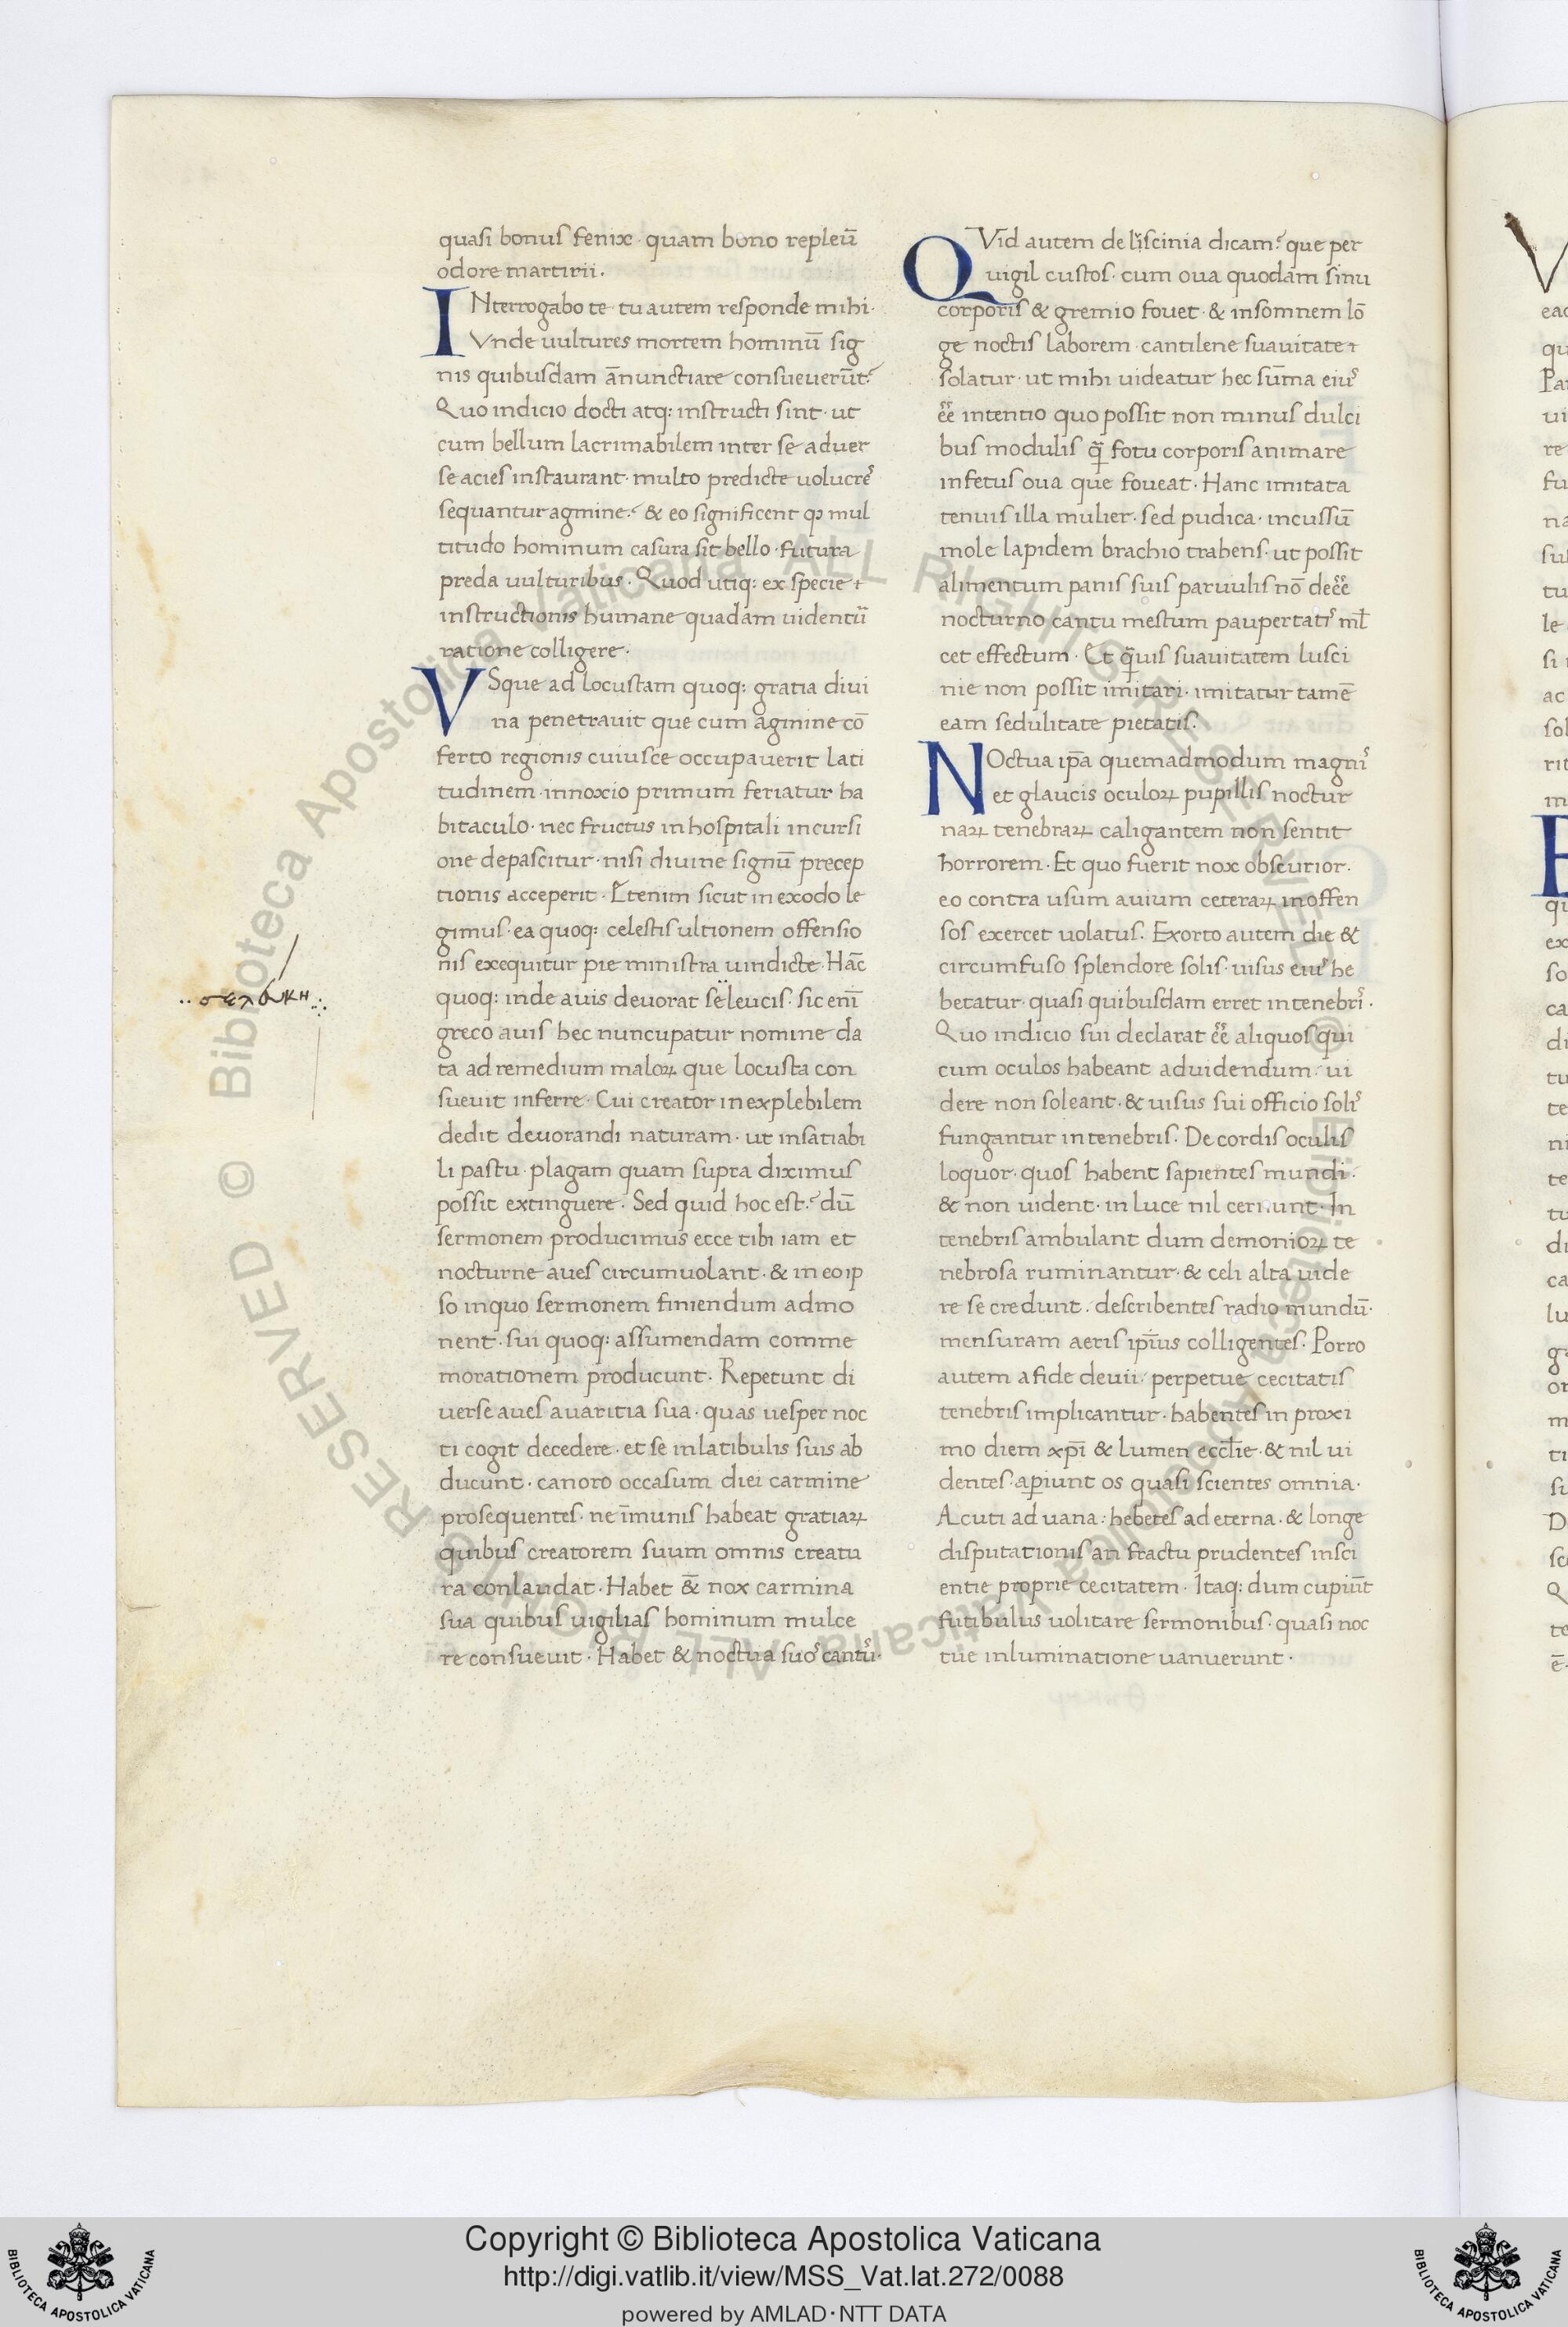 quasi bonus fenix · quam bono repleũ
odore martirii.
INterrogabo te · tu autem responde mihi ·
Vnde uultures mortem hominũ sig
nis quibusdam ãnunctiare consueuerũt?
Quo indicio docti atq: instructi sint · ut
cum bellum lacrimabilem inter se aduer
se acies instaurant · multo predicte uolucrẽ
sequantur agmine? & eo significent ꝙ mul
titudo hominum casura sit bello · futura
preda uulturibus · Quod utiq: ex specie
instructionis humane quadam uidentũ
ratione colligere ·
VSque ad locustam quoq: gratia diui
na penetrauit que cum agmine cõ
ferto regionis cuiusce occupauerit lati
tudinem · innoxio primum feriatur ha
bitaculo · nec fructus inhospitali incursi
one depascitur · nisi diuine signũ precep
tionis acceperit · Etenim sicut in exodo le
gimus · ea quoq: celestis ultionem offensio
nis exequitur pie ministra uindicte · Hãc
quoq: inde auis deuorat seleucis · sic enĩ
greco auis hec nuncupatur nomine da
ta ad remedium maloꝝ que locusta con
sueuit inferre · Cui creator inexplebilem
dedit deuorandi naturam · ut insatiabi
li pastu · plagam quam supra diximus
possit extinguere · Sed quid hoc est? dũ
sermonem producimus ecce tibi iam et
nocturne aues circumuolant · & in eo ip
so inquo sermonem finiendum admo
nent · sui quoq: assumendam comme
morationem producunt · Repetunt di
uerse aues auaritia sua · quas uesper noc
ti cogit decedere · et se inlatibulis suis ab
ducunt · canoro occasum diei carmine
prosequentes · ne ĩmunis habeat gratiaꝝ
quibus creatorem suum omnis creatu
ra conlaudat · Habet & nox carmina
sua quibus uigilias hominum mulce
re consueuit · Habet & noctua suos cantus ·
σελευκη
QVid autem de liscinia dicam? que per
uigil custos · cum oua quodam sinu
corporis & gremio fouet · & insomnem lõ
ge noctis laborem · cantilene suauitate
solatur · ut mihi uideatur hec sũma eiuˢ
ẽẽ intentio quo possit non minus dulci
bus modulis q̃ fotu corporis animare
infetus oua que foueat · Hanc imitata
tenuis illa mulier · sed pudica · incussũ
mole lapidem brachio trahens · ut possit
alimentum panis suis paruulis nõ deẽẽ
nocturno cantu mestum paupertatiˢ ml̃
cet effectum · Et q̃uis suauitatem lusci
nie non possit imitari · imitatur tamẽ
eam sedulitate pietatis ·
NOctua ip̃a quemadmodum magniˢ
et glaucis oculoꝝ pupillis noctur
naꝝ tenebraꝝ caligantem non sentit
horrorem · Et quo fuerit nox obscurior ·
eo contra usum auium ceteraꝝ inoffen
sos exercet uolatus · Exorto autem die &
circumfuso splendore solis · uisus eiuˢ he
betatur · quasi quibusdam erret in tenebriˢ ·
Quo indicio sui declarat ẽẽ aliquos qui
cum oculos habeant aduidendum · ui
dere non soleant · & uisus sui officio soliˢ
fungantur in tenebris · De cordis oculis
loquor · quos habent sapientes mundi ·
& non uident · in luce nil cernunt · In
tenebris ambulant dum demonioꝝ te
nebrosa ruminantur · & celi alta uide
re se credunt · describentes radio mundũ ·
mensuram aeris ip̃ius colligentes · Porro
autem afide deuii · perpetue cecitatis
tenebris implicantur · habentes in proxi
mo diem xp̃i & lumen eccl̃ie · & nil ui
dentes · aꝑiunt os quasi scientes omnia ·
Acuti ad uana · hebetes ad eterna · & longe
disputationis an fractu prudentes insci
entie proprie cecitatem · Itaq: dum cupiũt
futibulus uolitare sermonibus · quasi noc
tue inluminatione uanuerunt ·
Copyright © Biblioteca Apostolica Vaticana
http://digi.vatlib.it/view/MSS_Vat.lat.272/0088
powered by AMLAD · NTT DATA